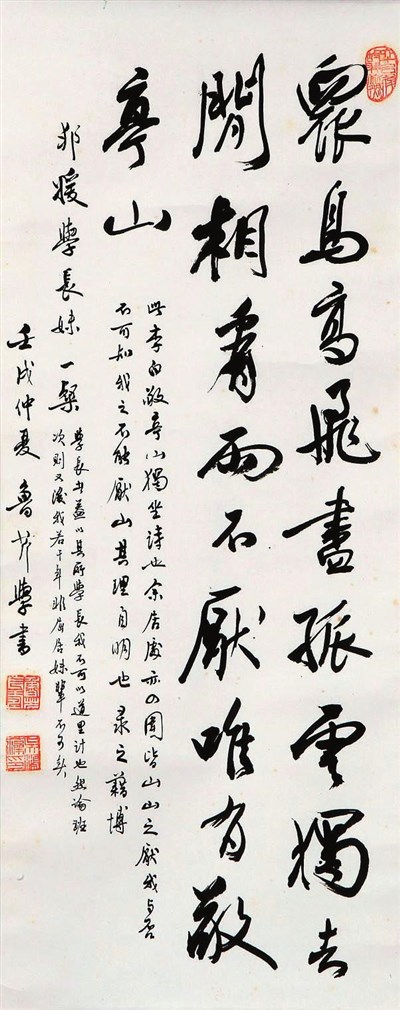 眾鳥高飛盡孤雲獨去
閒相看兩不厭唯有敬
亭山
此李白敬亭山獨坐詩也余居處亦四圍皆山山之厭我與否
不可知我之不能厭山其理自明也录之藉博
邦媛學長妹一粲
學長者蓋以其所學長我不可以道里計也無論班
次則又後我若干年雖屈居妹輩不可矣
壬戌仲夏魯芹學書